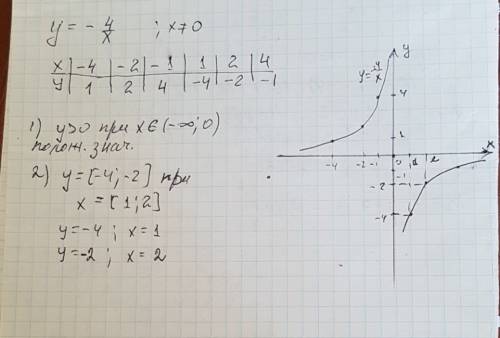 y = - 4/x ; x≠0
x | -4 | -2 | -1 | 1 | 2 | 4
y | 1 | 2 | 4 | -4 | -2 | -1
1) y>0 при x∈(-∞;0)
полож. знач.
2) y=[-4;-2] при
x=[1;2]
y=-4; x=1
y=-2; x=2
y
y=-4/x
4
1
x
-4 -2 -1 0 1 2
-1
-2
-4